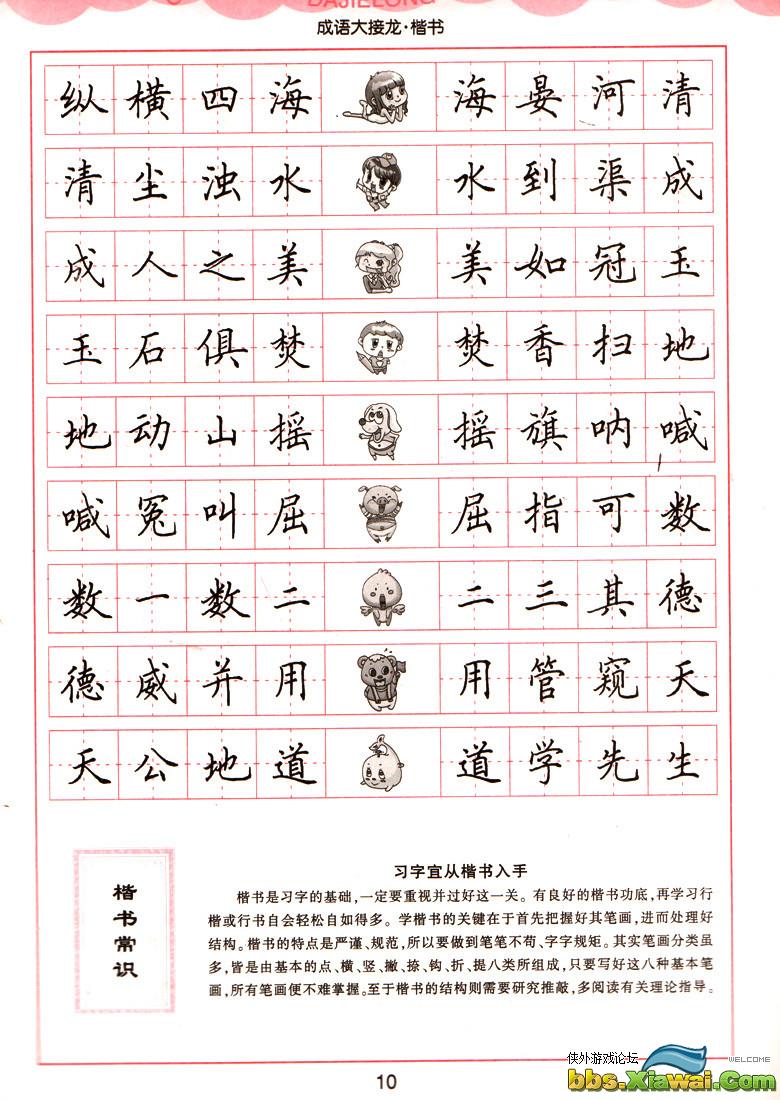 DAJIELONG
成语大接龙·楷书
纵横四海 海晏河清
清尘浊水 水到渠成
成人之美 美如冠玉
玉石俱焚 焚香扫地
地动山摇 摇旗呐喊
喊冤叫屈 屈指可数
数一数二 二三其德
德威并用 用管窥天
天公地道 道学先生
楷书常识
习字宜从楷书入手
楷书是习字的基础,一定要重视并过好这一关。有良好的楷书功底,再学习行
楷或行书自会轻松自如得多。学楷书的关键在于首先把握好其笔画,进而处理好
结构。楷书的特点是严谨、规范,所以要做到笔笔不苟、字字规矩。其实笔画分类虽
多,皆是由基本的点、横、竖、撇、捺、钩、折、提八类所组成,只要写好这八种基本笔
画,所有笔画便不难掌握。至于楷书的结构则需要研究推敲,多阅读有关理论指导。
侠外游戏论坛
WELCOME
bbs.Xiawai.Com
10